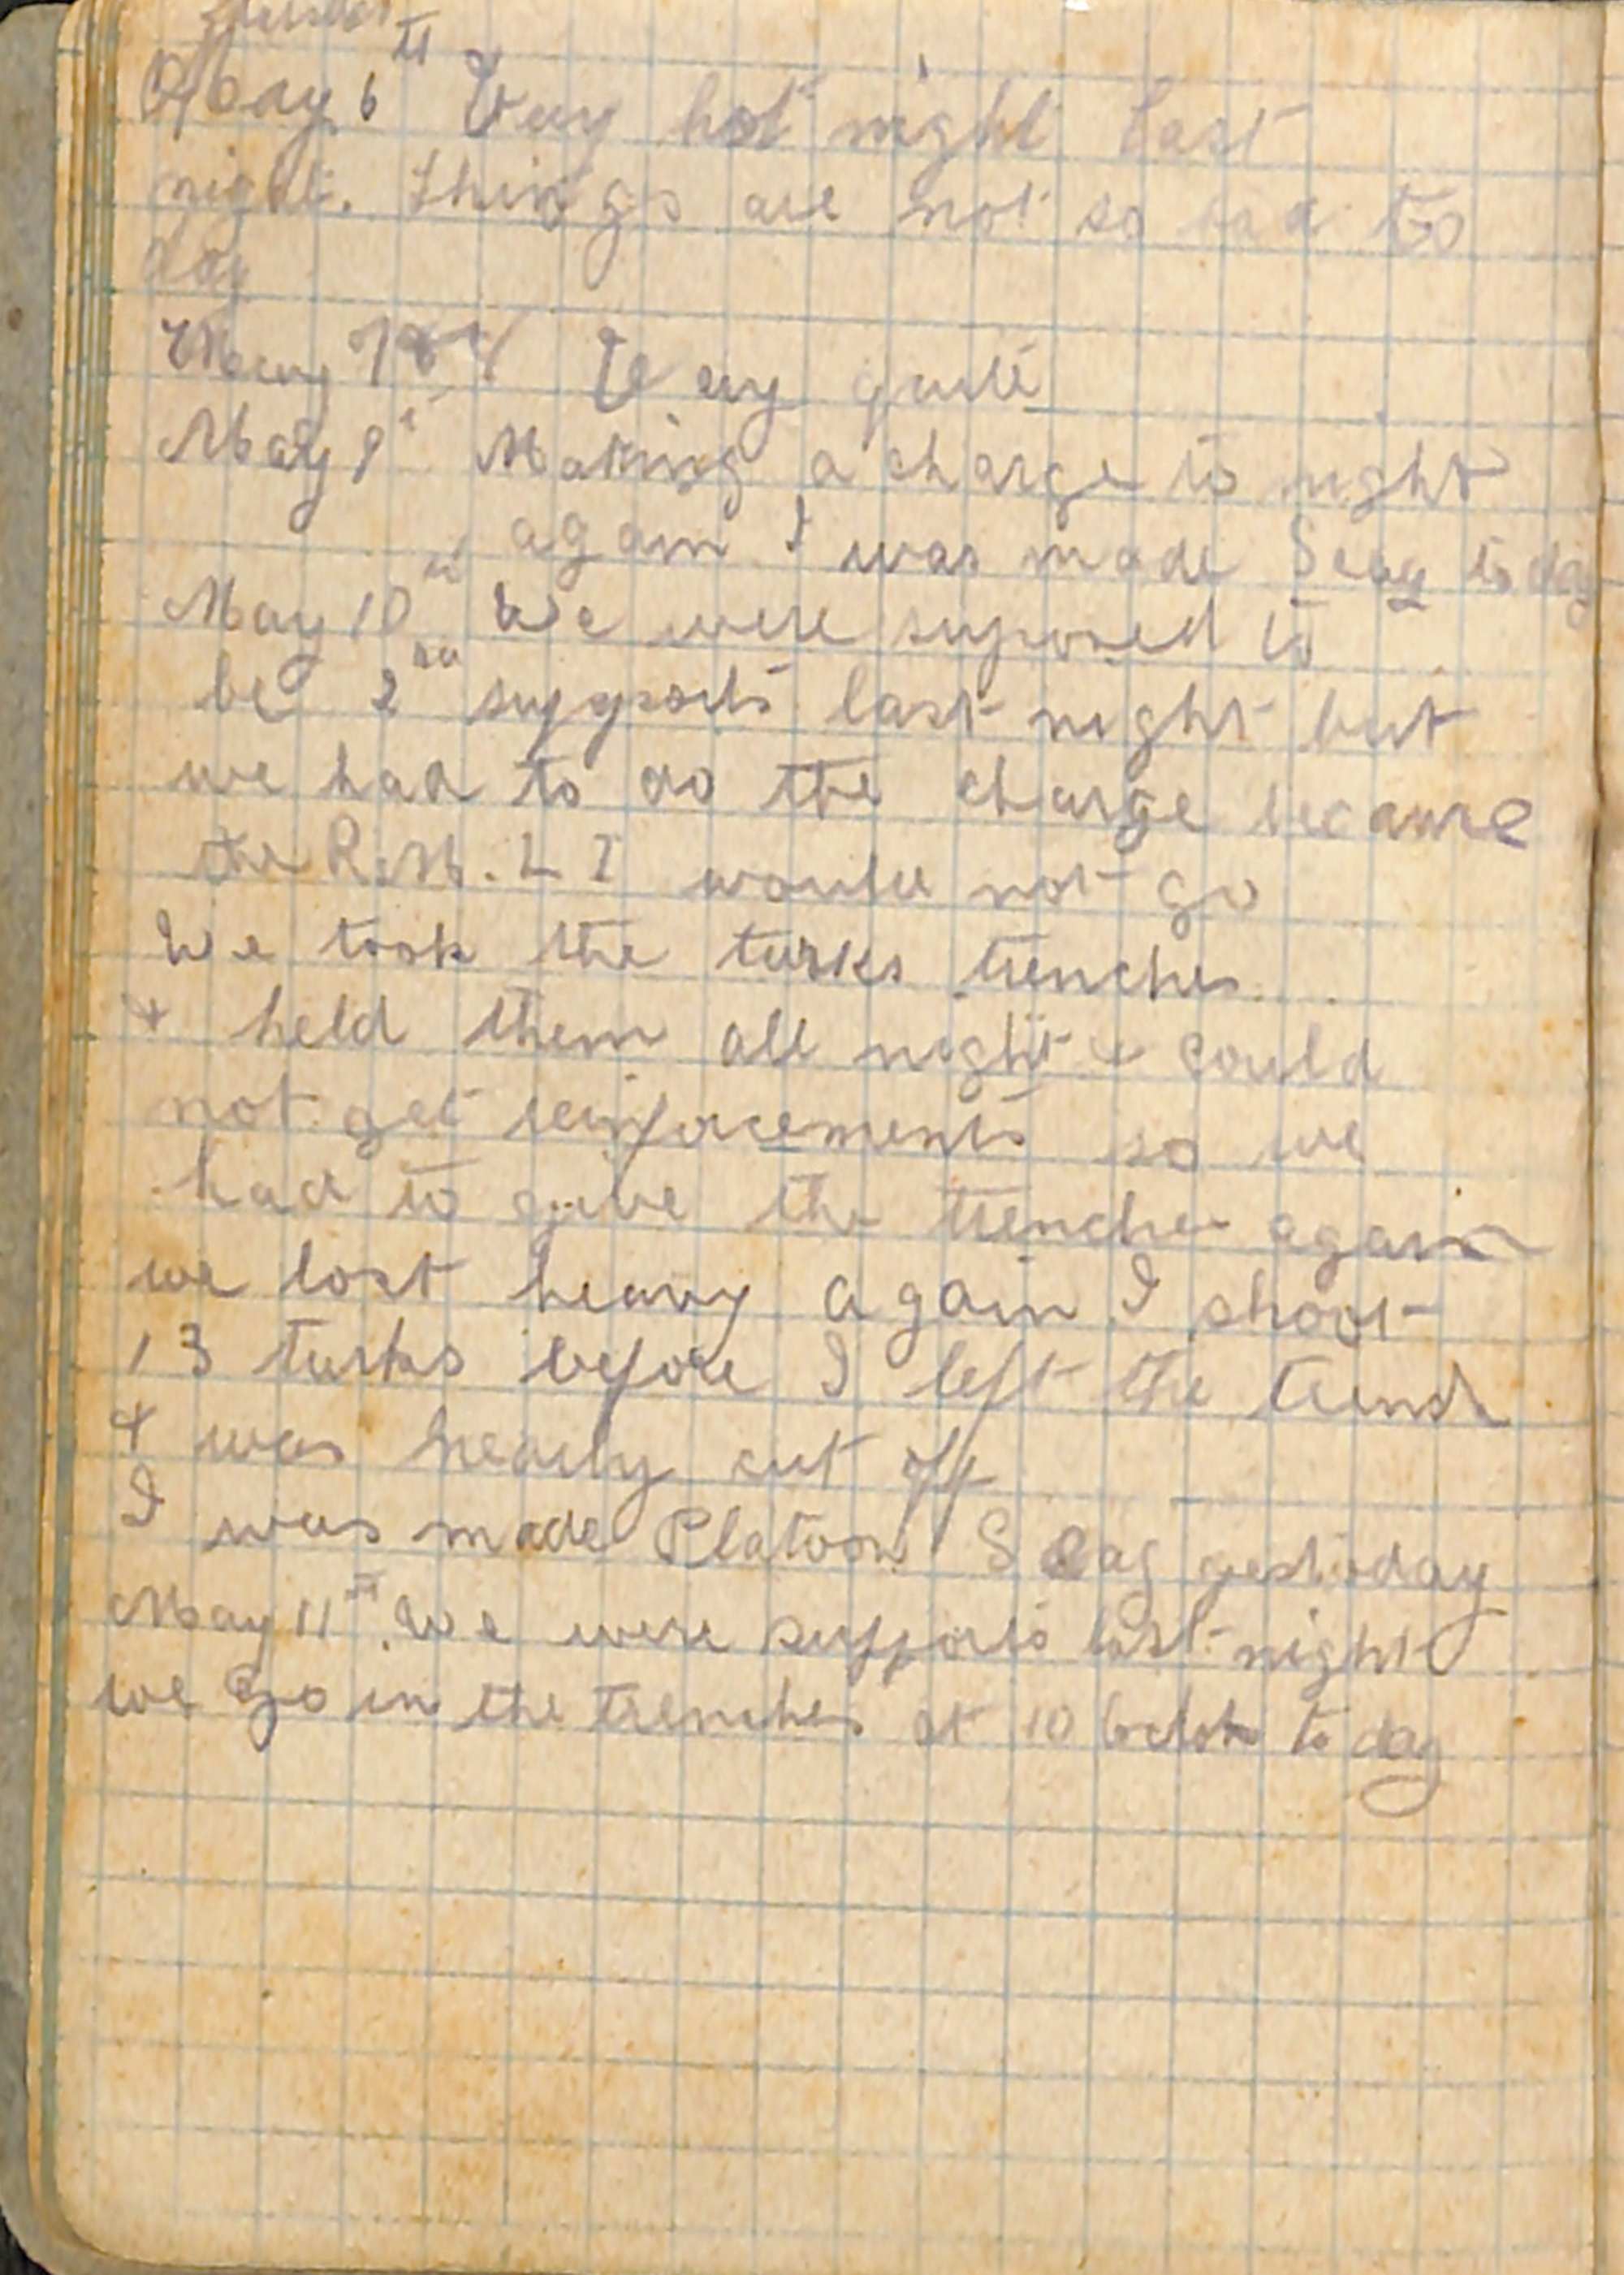 May 6th Very hot night last
night. Things are not so bad to
day
May 7th Very quite
May 9th Making a charge to night
again I was made Serg to day
May 10th We were suposed to
be 2nd supports last night but
we had to do the charge because
the R.M. L I would not go
We took the turks trenches
& held them all night & could
not get reinforcements so we
had to give the trenches again
we lost heavy again I shoot
13 turks before I left the trench
& was nearly cut off
I was made Platoon Serg yestoday
May 11th. We were supports last night
we go in the trenches at 10 to day